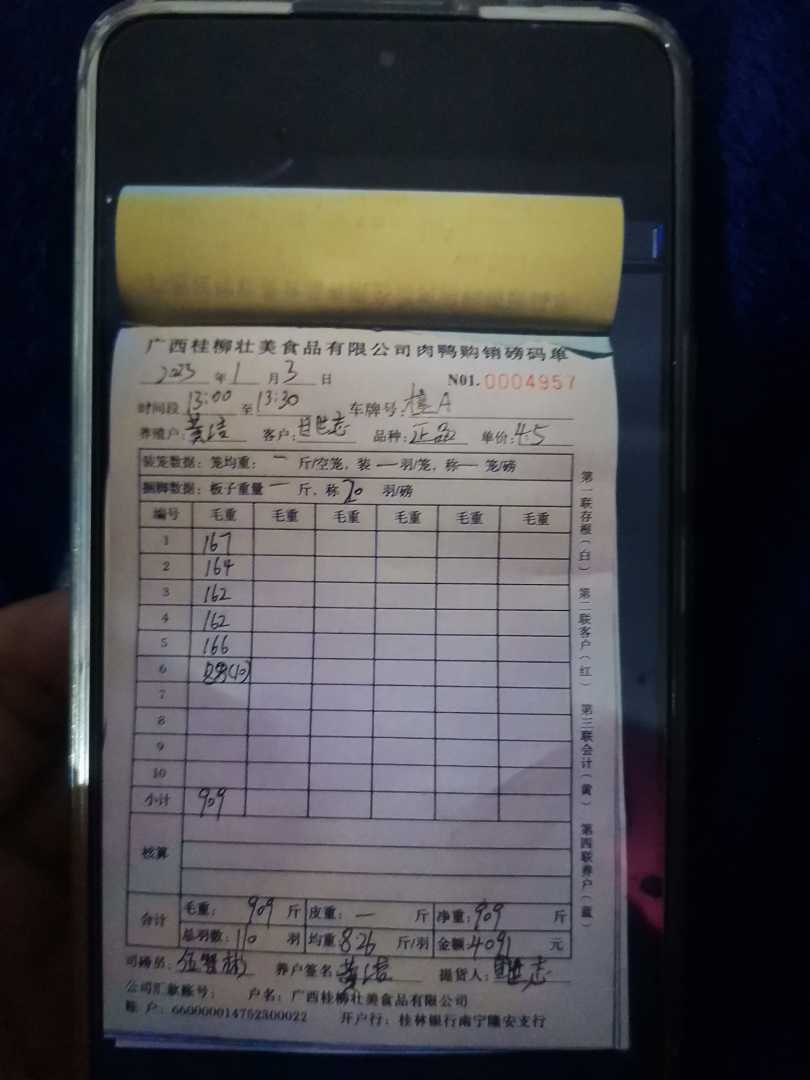 广西桂柳壮美食品有限公司肉鸭购销磅码单
2023 年 1 月 3 日 N01. 0004957
时间段 13:00 至 13:30 车牌号: 桂A
养殖户: 黄 客户: 志 品种: 正品 单价: 4.5
装笼数据: 笼均重: 一 斤/空笼, 装 一 羽/笼, 称 一 笼/磅
捆脚数据: 板子重量 一 斤, 称 20 羽/磅
编号 毛重 毛重 毛重 毛重 毛重 毛重
1 167
2 164
3 162
4 162
5 166
6 (10)
7
8
9
10
小计 909
核算
合计 毛重: 909 斤 皮重: 一 斤 净重: 909 斤
总羽数: 110 羽 均重: 8.26 斤/羽 金额: 4091 元
司磅员: 养户签名: 黄 提货人: 志
公司汇款账号: 户名: 广西桂柳壮美食品有限公司
账 户: 660000014752300022 开户行: 桂林银行南宁隆安支行
第一联存根(白) 第二联客户(红) 第三联会计(黄) 第四联养户(蓝)